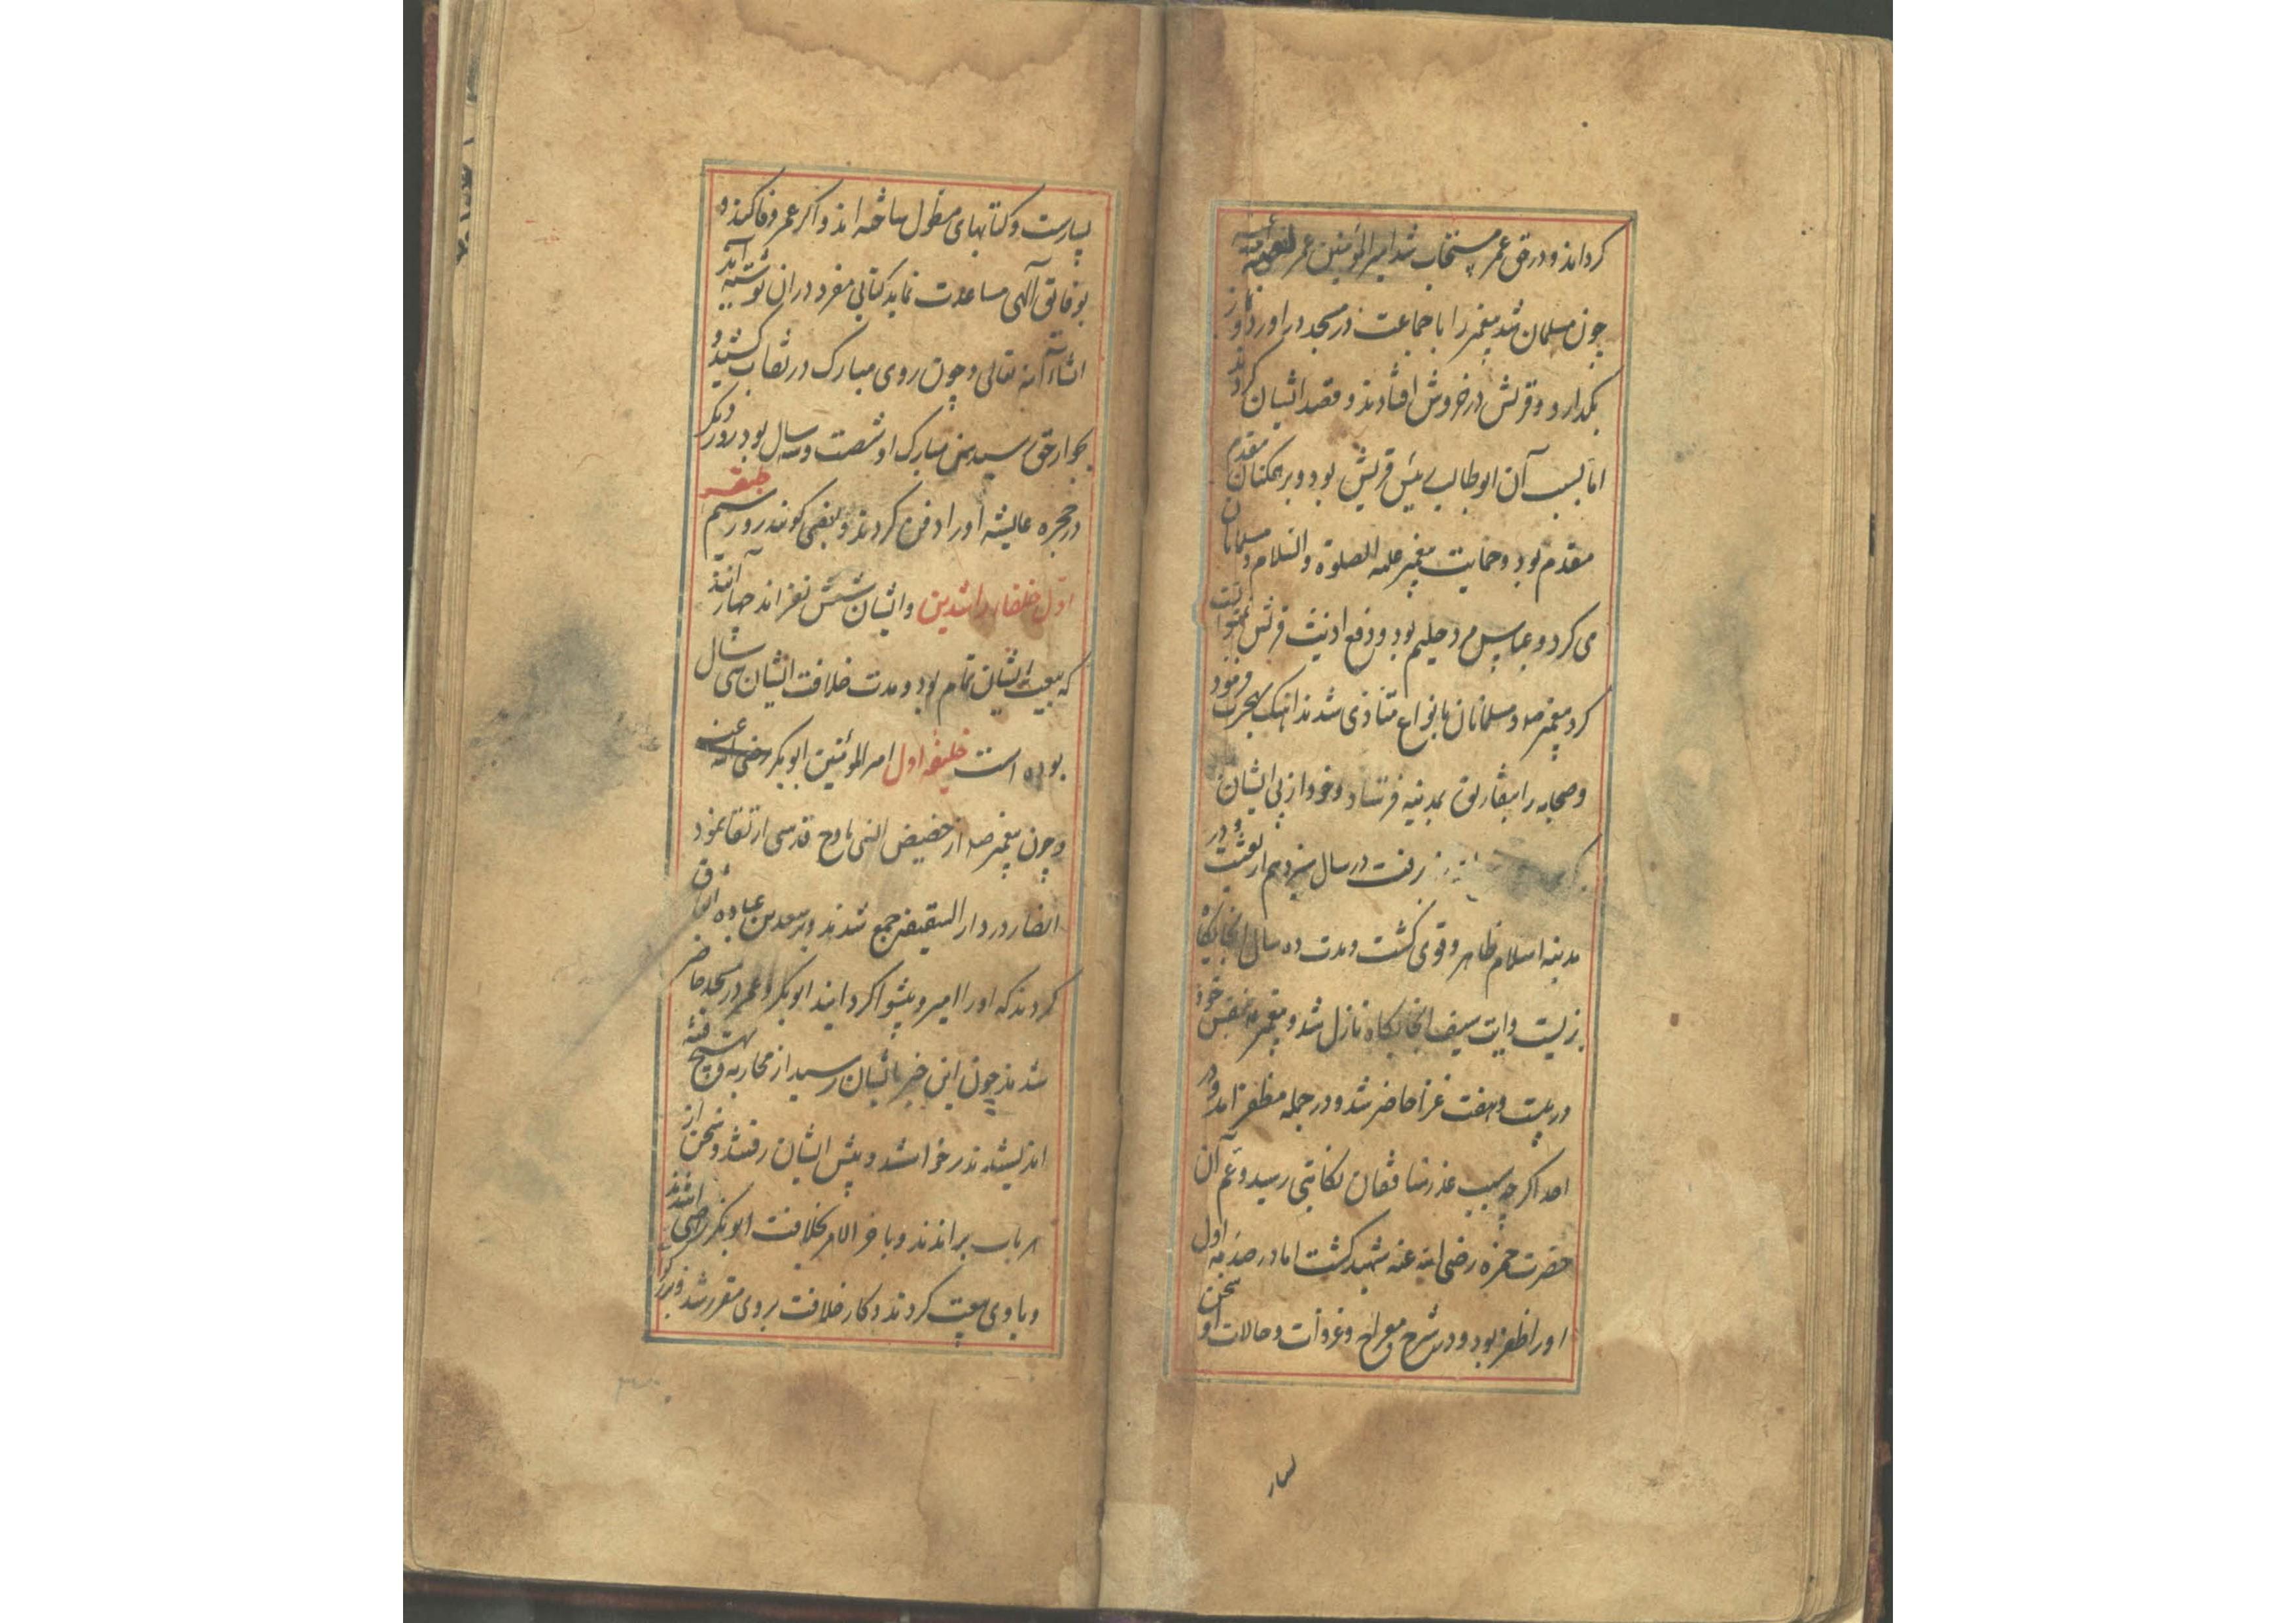 کرداند و در حق عمر مستجاب شد امیر المؤمنین عمر
چون مسلمان شد پیغمبر را با جماعت در مسجد در اورد و نماز
بکدارد و قریش در خروش افتادند و قصد ایشان کردند
اما بسبب آن ابوطالب رئیس قریش بود و بر همکنان مقدم
مقدم بود و حمایت پیغمبر علیه الصلوة والسلام و مسلمانان
می کرد و عباس مرد حلیم بود و دفع اذیت قریش
کرد پیغمبر صه و مسلمانان بانواع متاذی شدند اهنک هجرت فرمود
و صحابه را بتفاریق بمدینه فرستاد و خود از پی ایشان
رفت در سال سیزدهم از بعثت و در
مدینه اسلام ظاهر و قوی کشت و مدت ده سال انجایکاه
بزیست و ایت سیف انجایکاه نازل شد و پیغمبر بنفس خود
در بیست و هفت غزا حاضر شد و در جمله مظفر امد و در
احد اکر چه بسبب غدر منافقان نکایتی رسید و عم آن
حضرت حمزه رضی الله عنه شهید کشت اما در صدمه اول
او را ظفر بود و در شرح معراج و غزوات و حالات او سخن
بسیار
بسیارست و کتابهای مطول ساخته اند و اکر عمر وفا کند و
توفیق آلهی مساعدت نماید کتابی مفرد در ان نوشته آید
انشاء الله تعالی و چون روی مبارک در نقاب کشید و
بجوار حق رسید سن مبارک او شصت و سه سال بود روز دیکر
در حجره عایشه او را دفن کردند و بعضی کویند روز سیم طبقه
اول خلفاء راشدین و ایشان شش نفر اند چهار آنند
که بیعت ایشان تمام بود و مدت خلافت ایشان سی سال
بوده است خلیفه اول امیر المؤمنین ابوبکر رضی الله عنه
و چون پیغمبر صه از حضیض انسی باوج قدسی ارتقا نمود
انصار در دار السقیفه جمع شدند و بر سعد بن عباده اتفاق
کردند که او را امیر و پیشوا کردانند ابوبکر و عمر در مسجد حاضر
شدند چون این خبر بایشان رسید از محاربه و تهییج فتنه
اندیشیدند برخواستند و پیش ایشان رفتند و سخن از
هر باب براندند و با خر الامر بخلافت ابوبکر راضی شدند
و با وی بیعت کردند و کار خلافت بر وی مقرر شد